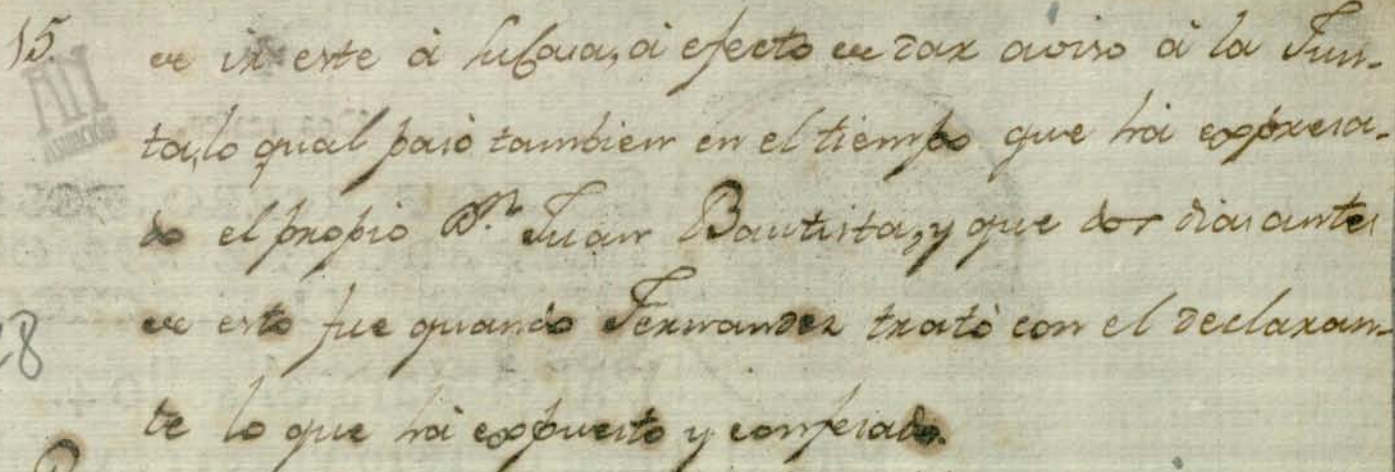 15. de ir este à Lisboa, à efecto de dar aviso à la Jun-
ta, lo qual pasò tambien en el tiempo que hà expresa-
do el propio Dn. Juan Bautista, y que dos dias antes
de esto fue quando Fernandez tratò con el declaran-
28
te lo que hà expuesto y confesado.